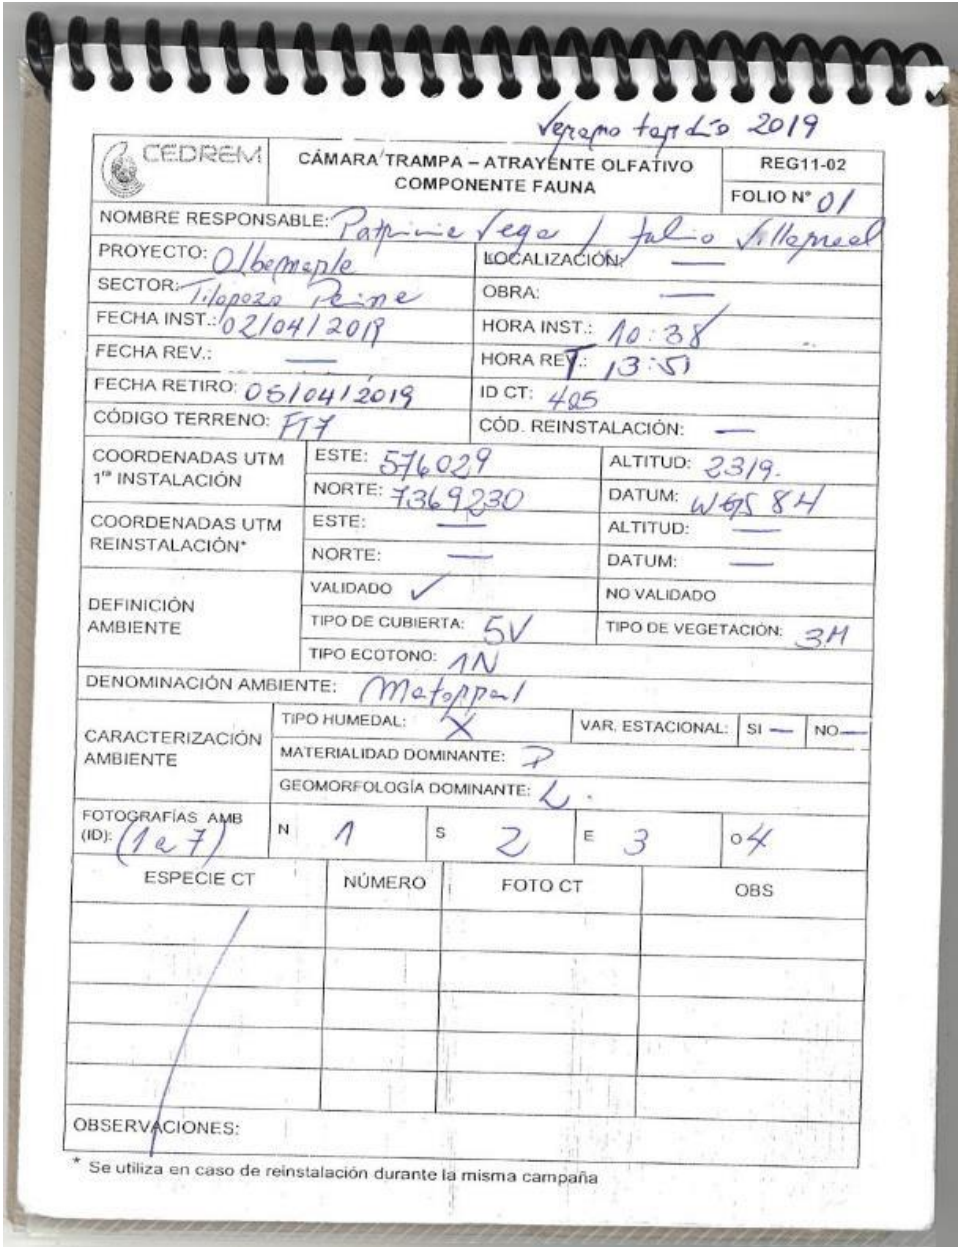 Verano tardío 2019
CEDREM
CÁMARA TRAMPA – ATRAYENTE OLFATIVO
COMPONENTE FAUNA
REG11-02
FOLIO N° 01
NOMBRE RESPONSABLE: Patricia Vega / Julio Villarreal
PROYECTO: Albemarle LOCALIZACIÓN: —
SECTOR: Tilopozo Peine OBRA: —
FECHA INST.: 02/04/2019 HORA INST.: 10:38
FECHA REV.: — HORA REV.: 13:51
FECHA RETIRO: 05/04/2019 ID CT: 405
CÓDIGO TERRENO: FT7 CÓD. REINSTALACIÓN: —
COORDENADAS UTM
1ra INSTALACIÓN
ESTE: 576029 ALTITUD: 2319.
NORTE: 7369230 DATUM: WGS 84
COORDENADAS UTM
REINSTALACIÓN*
ESTE: — ALTITUD: —
NORTE: — DATUM: —
DEFINICIÓN
AMBIENTE
VALIDADO ✓ NO VALIDADO
TIPO DE CUBIERTA: 5V TIPO DE VEGETACIÓN: 3M
TIPO ECOTONO: 1N
DENOMINACIÓN AMBIENTE: Matorral
CARACTERIZACIÓN
AMBIENTE
TIPO HUMEDAL: X VAR. ESTACIONAL: SI — NO —
MATERIALIDAD DOMINANTE: P
GEOMORFOLOGÍA DOMINANTE: L.
FOTOGRAFÍAS AMB
(ID): (1 a 7) N 1 S 2 E 3 O 4
ESPECIE CT NÚMERO FOTO CT OBS
OBSERVACIONES:
* Se utiliza en caso de reinstalación durante la misma campaña